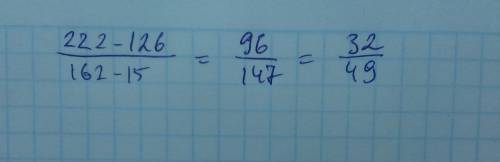 222-126/162-15 = 96/147 = 32/49